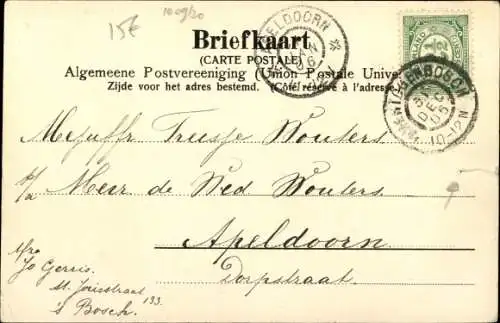 15€ 1009/20
Briefkaart
(CARTE POSTALE)
Algemeene Postvereeniging (Union Postale Unive
Zijde voor het adres bestemd. (Côté réservé à l'adresse
APELDOORN
JAN
'S HERTOGENBOSCH
31 DEC 05
10-12N
Mejuffr Treesje Wouters
p/a Meer de Wed Wouters.
Apeldoorn
Dorpstraat.
Jo Gerris.
St. Jorisstraat
133.
's Bosch.